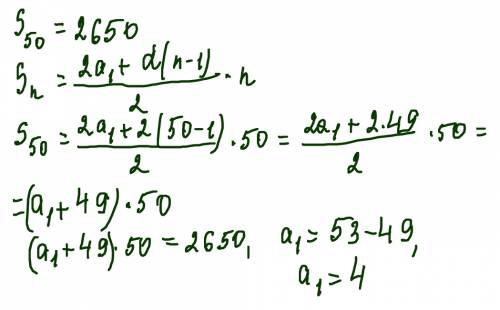 S₅₀ = 2650
Sₙ = (2a₁ + d(n-1))/2 · n
S₅₀ = (2a₁ + 2(50-1))/2 · 50 = (2a₁ + 2·49)/2 · 50 =
=(a₁ + 49)·50
(a₁ + 49)·50 = 2650, a₁ = 53-49,
a₁ = 4